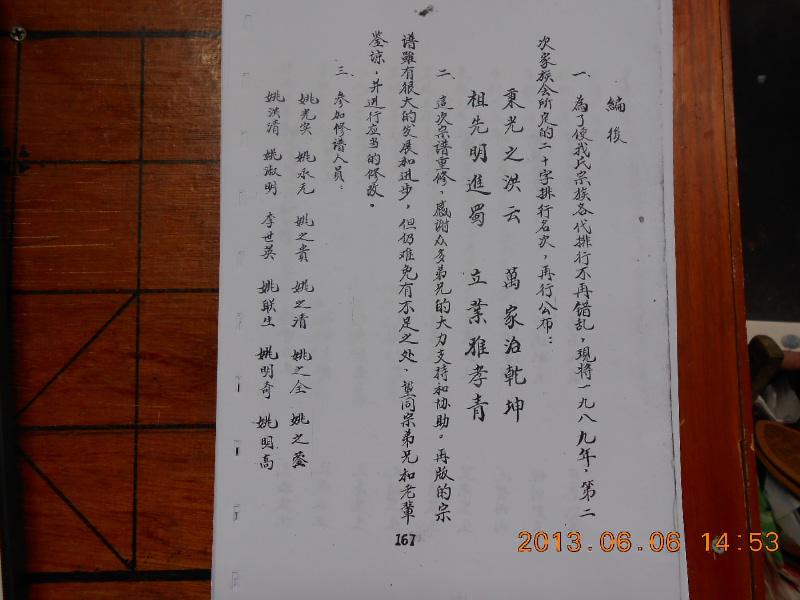 編後
一、為了使我氏宗族各代排行不再错乱，現將一九八九年，第二
次家族会所定的二十字排行名次，再行公布：
秉光之洪云　萬家治乾坤
祖先明進蜀　立業雅孝青
二、這次宗譜重修，感谢众多弟兄的大力支持和协助。再版的宗
谱雖有很大的发展和进步，但仍难免有不足之处．望同宗弟兄和老輩
鉴谅，并进行应当的修改。
三、参加修谱人员：
姚光安　姚承元　姚之貴　姚之清　姚之全　姚之
姚洪清　姚淑明　李世英　姚联生　姚明奇　姚明高
167
2013.06.06 14:53